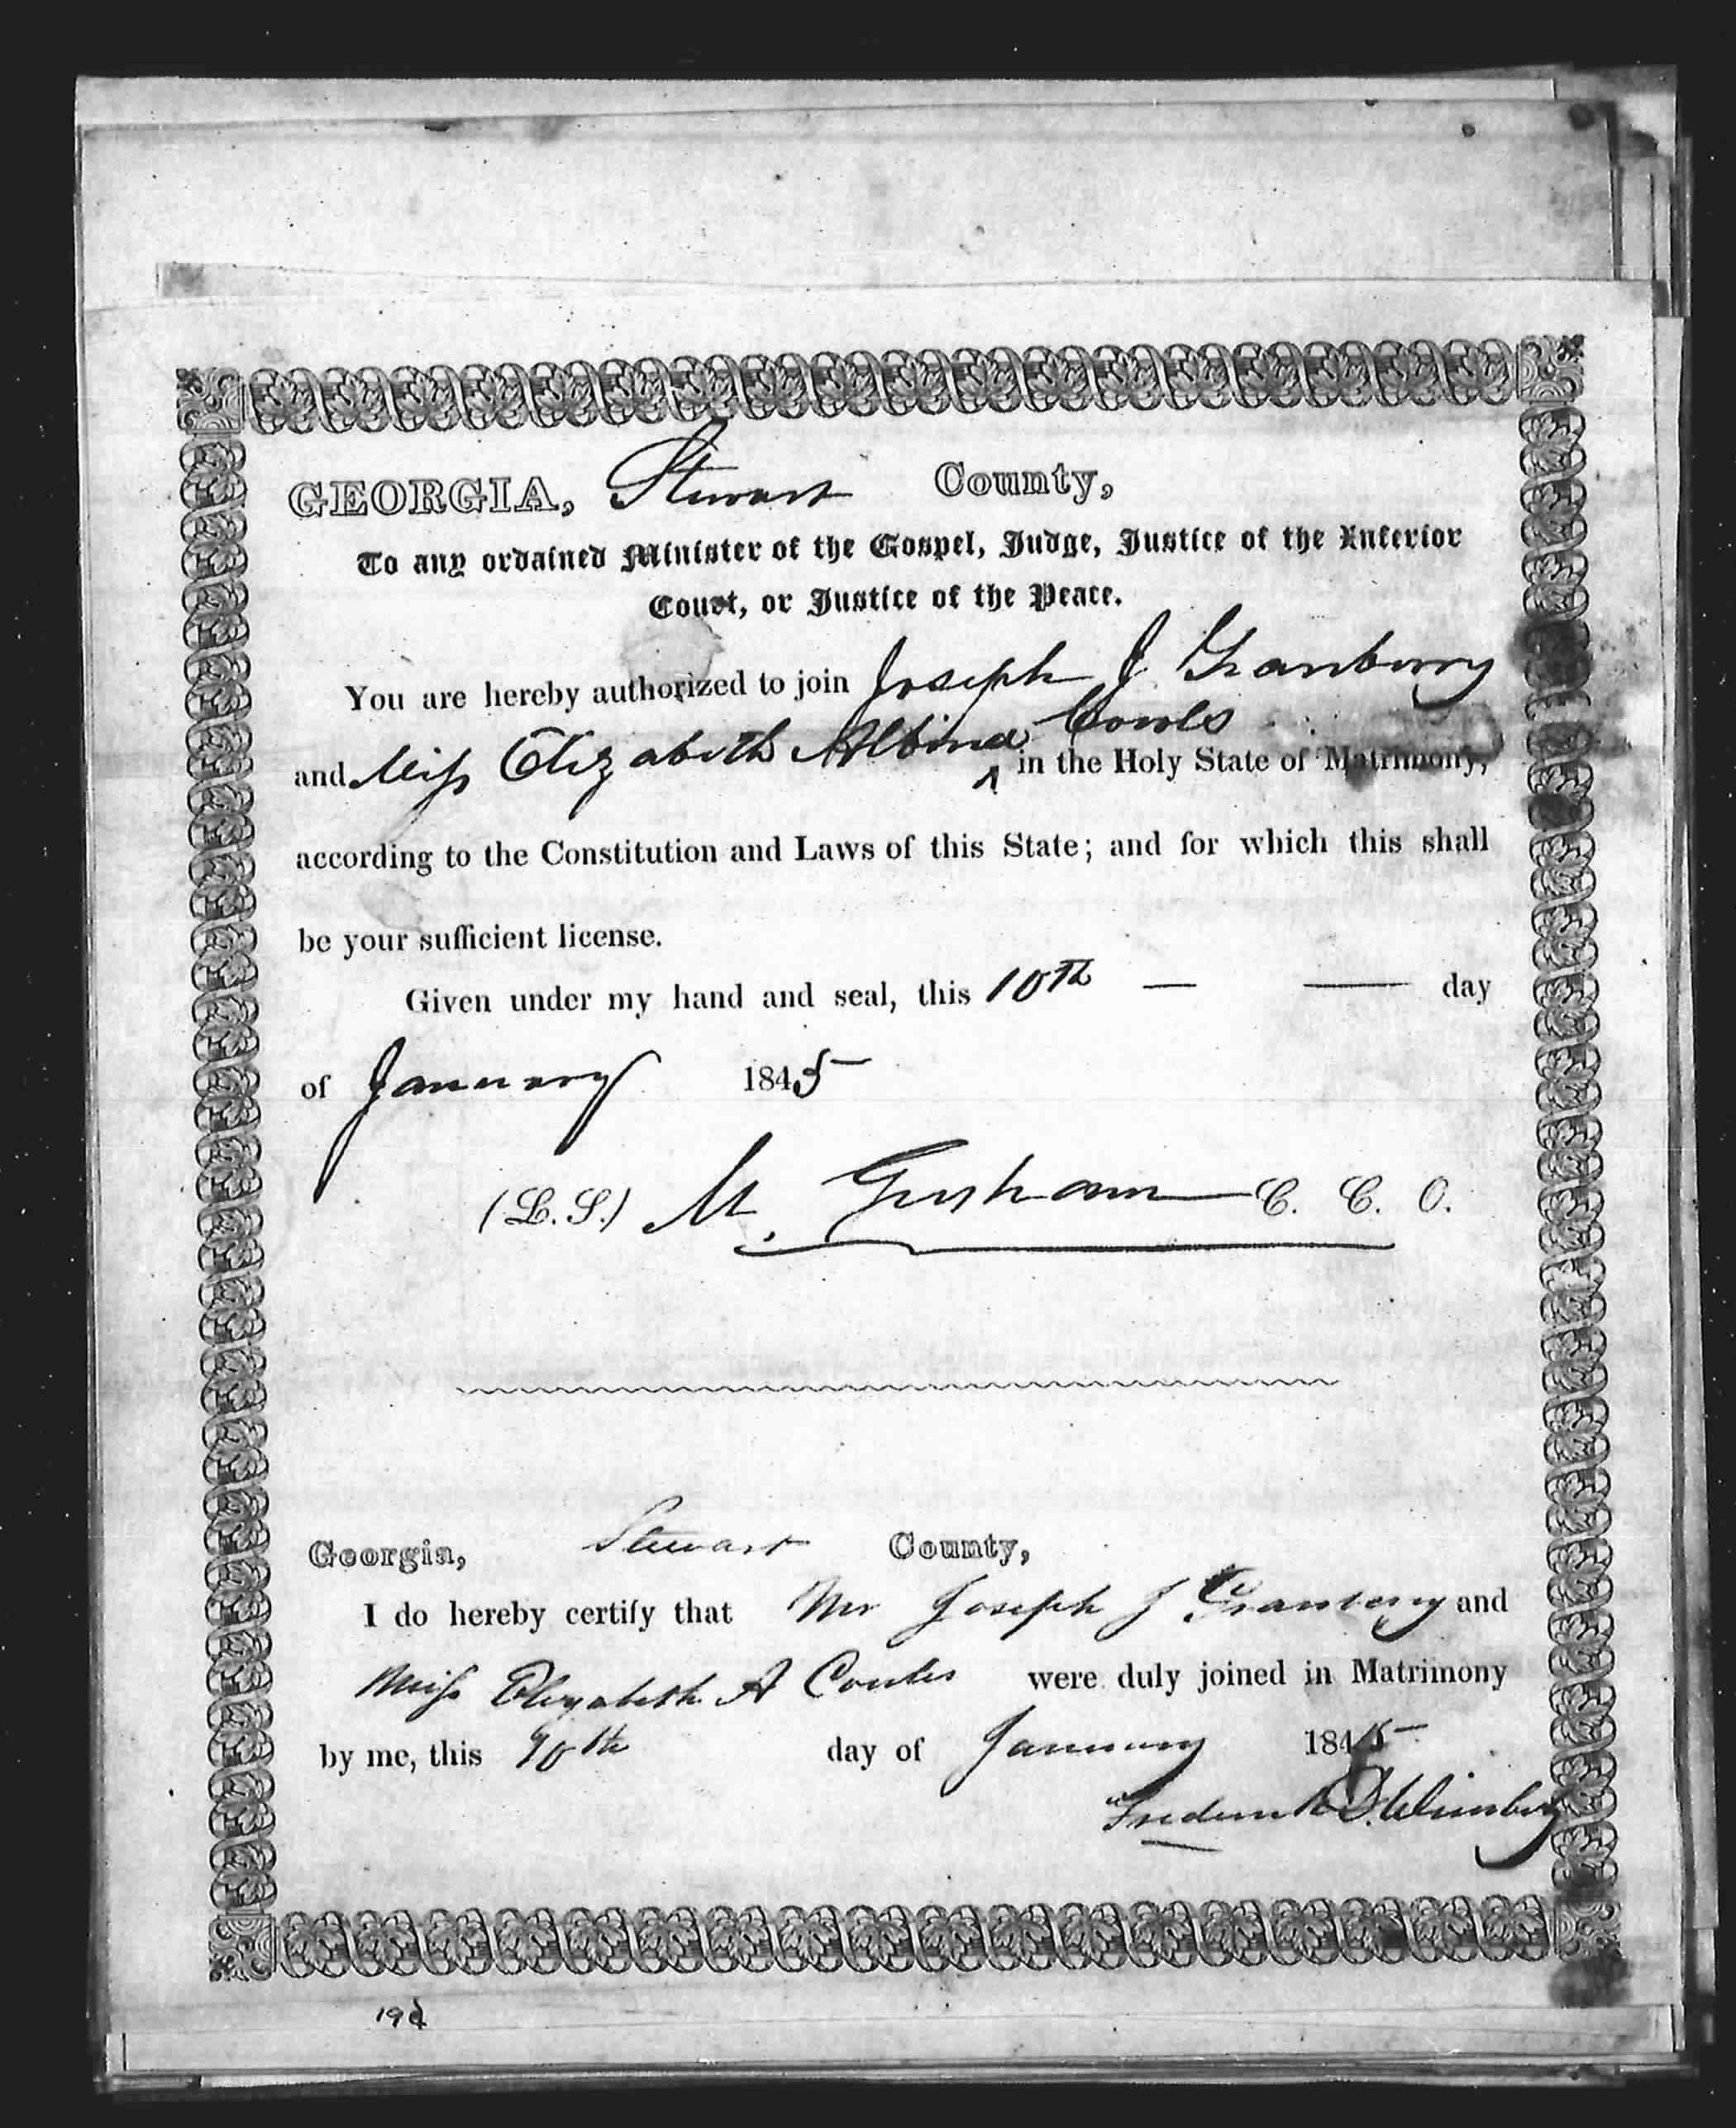 GEORGIA, Stewart County,
To any ordained Minister of the Gospel, Judge, Justice of the Inferior
Court, or Justice of the Peace.
You are hereby authorized to join Joseph J Granberry
and Miss Elizabeth Albina Cowls
in the Holy State of Matrimony,
according to the Constitution and Laws of this State; and for which this shall
be your sufficient license.
Given under my hand and seal, this 10th — — day
of January 1845
(L. S.) M. Gresham C. C. O.
Georgia, Stewart County,
I do hereby certify that Mr Joseph J Granbery and
Miss Elizabeth A Cowles were duly joined in Matrimony
by me, this day of January 1845
Frederick D. Wimberly